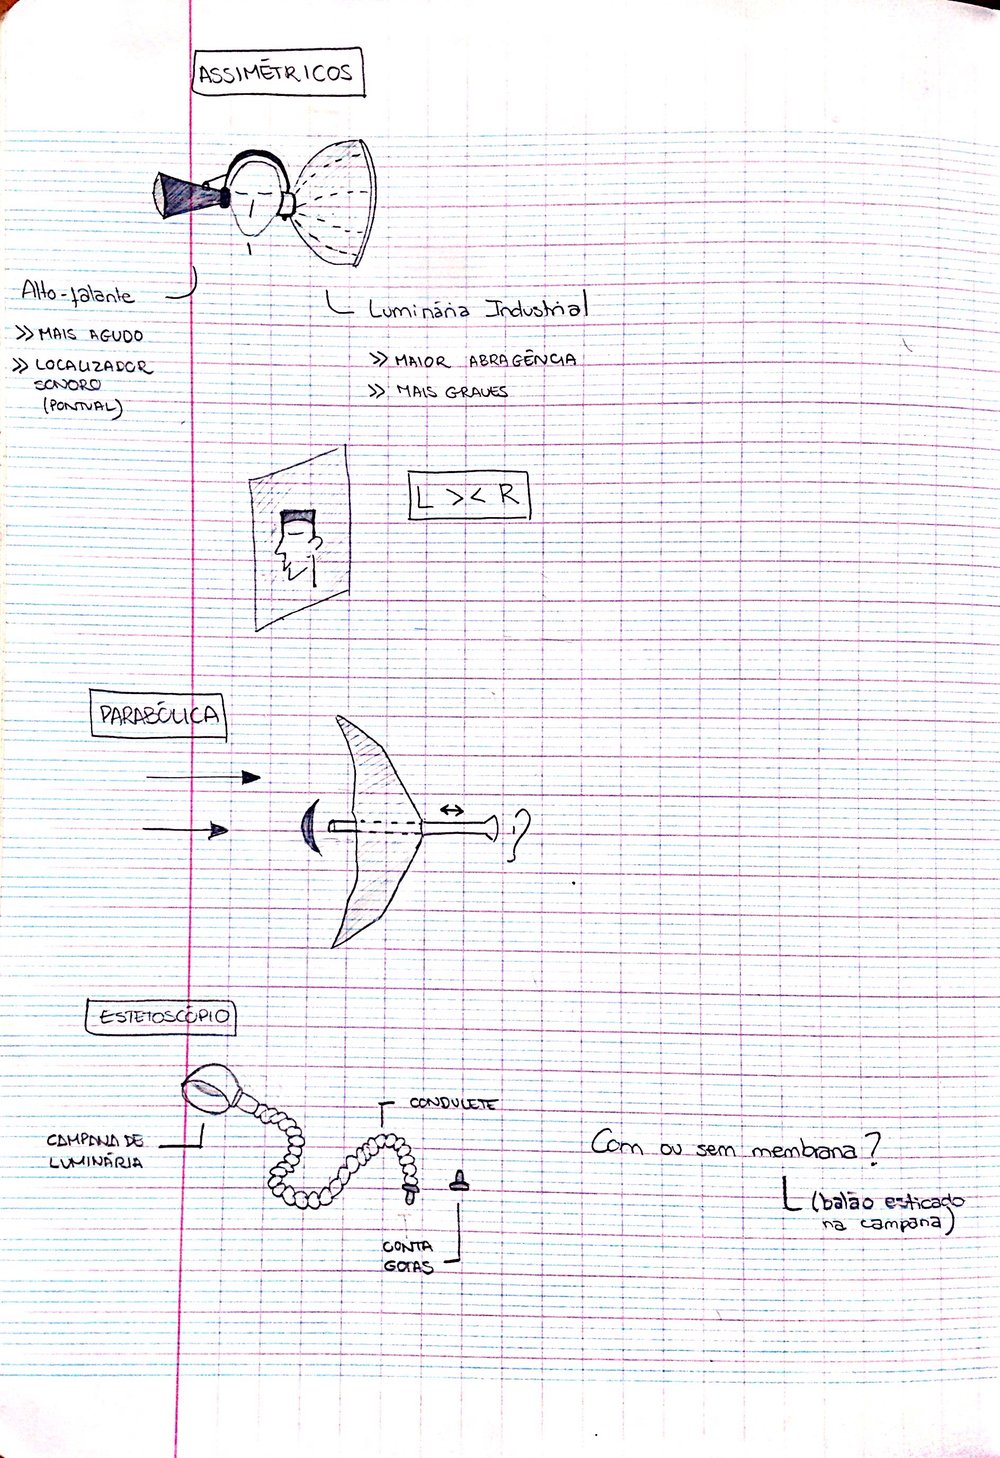 ASSIMÉTRICOS
Alto-falante
>> MAIS AGUDO
>> LOCALIZADOR
SONORO
(PONTUAL)
Luminária Industrial
>> MAIOR ABRAGÊNCIA
>> MAIS GRAVES
L >< R
PARABÓLICA
?
ESTETOSCÓPIO
CONDULETE
CAMPANA DE
LUMINÁRIA
CONTA
GOTAS
Com ou sem membrana?
(balão esticado
na campana)